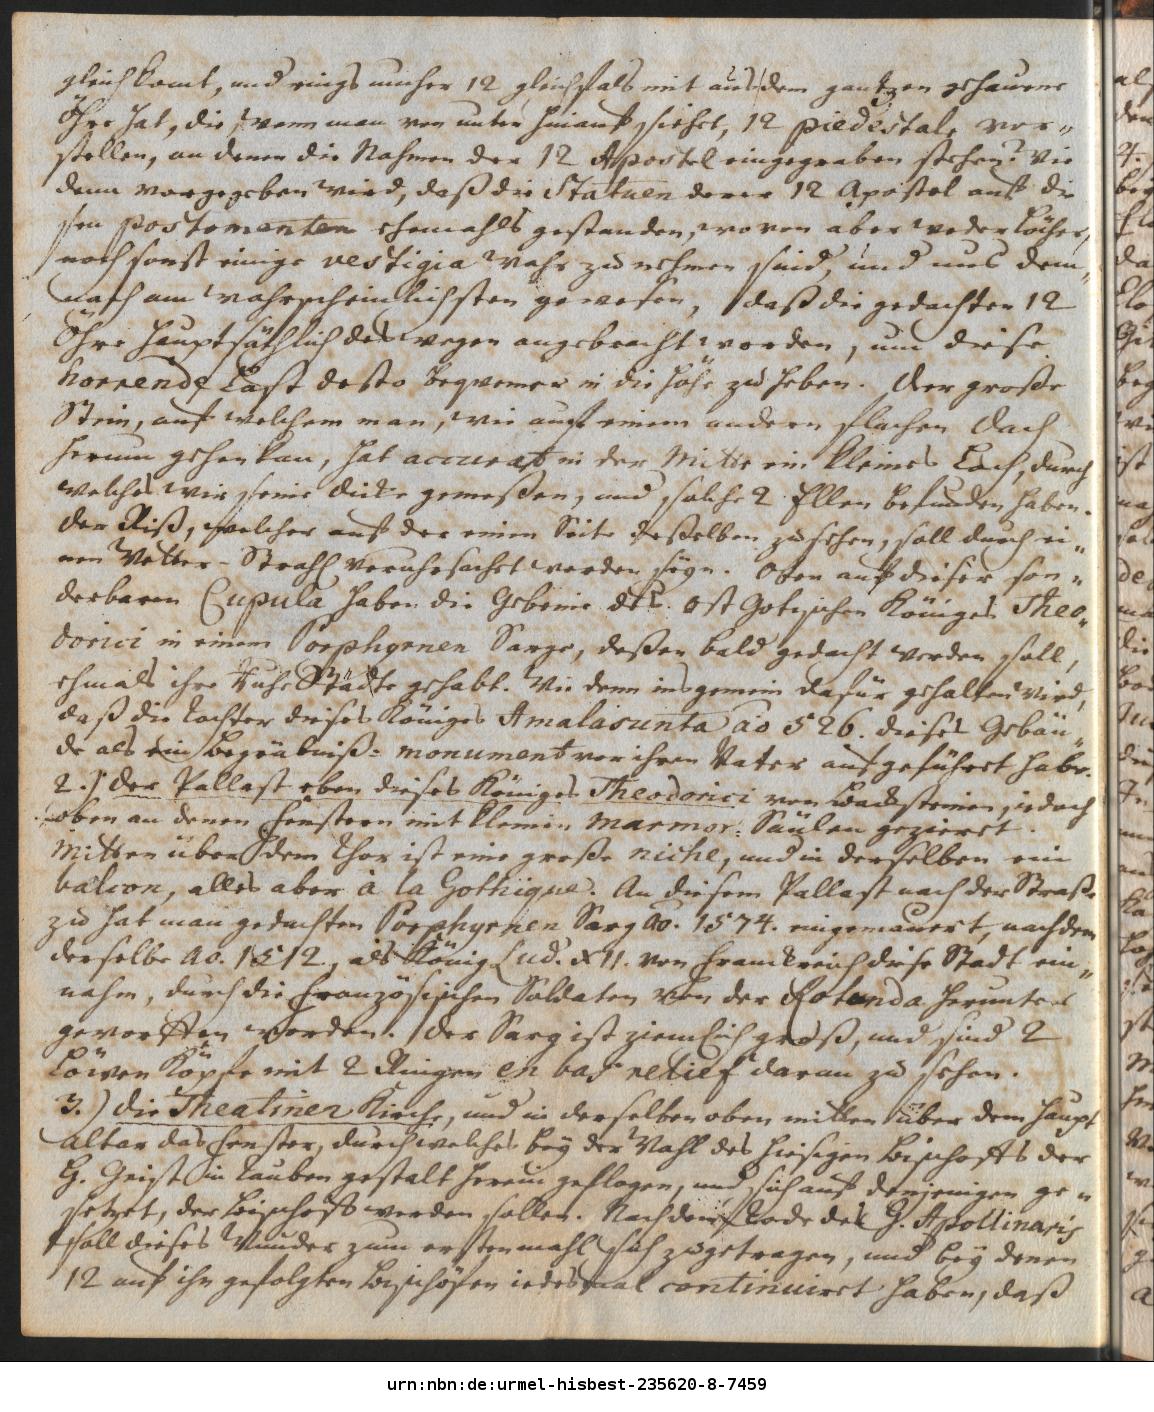 gleich komt, und rings umher 12 gleichfals mit aus dem gantzen gehauene
Öhre hat, die, wenn man von unten hinauf siehet, 12 piedestale vor-
stellen, an denen die Nahmen der 12 Apostel eingegraben stehen. Wie
denn vorgegeben wird, daß die Statuen derer 12 Apostel auf die
sen postementen ehemahls gestanden, wovon aber weder Löcher,
noch sonst einige vestigia wahr zu nehmen sind, und uns dem-
nach am wahrscheinlichsten gewesen, daß die gedachten 12
Öhre hauptsächlich deswegen angebracht worden, um diese
horrende Last desto beqvemer in die Höhe zu heben. Der große
Stein, auf welchem man, wie auf einem andern flachen Dach
herum gehen kan, hat accurat in der Mitte ein kleines Loch, durch
welches wir seine dicke gemeßen, und solche 2 Ellen befunden haben.
der Riß, welcher auf der einen Seite deßelben zu sehen, soll durch ei-
nen Wetter-Strahl veruhrsachet worden seyn. Oben auf dieser son-
derbaren Cupula haben die Gebeine des Ost Gotischen Königes Theo-
dorici in einem Porphyrnen Sarge, deßen bald gedacht werden soll,
ehmals ihre Ruhe Städte gehabt. Wie denn ins gemein dafür gehalten wird,
daß die Tochter dieses Königes Amalasunta ao 526. dieses Gebäu-
de als ein Begräbniß-monument vor ihren Vater aufgeführet habe.
2.) der Pallast eben dieses Königes Theodorici von Backsteinen, iedoch
oben an denen Fenstern mit kleinen marmor-Säulen gezieret.
Mitten über dem Thor ist eine große niche, und in derselben ein
balcon, alles aber à la Gothique. An diesem Pallast nach der Straße
zu hat man gedachten Porphyrnen Sarg Ao. 1574. eingemauert, nachdem
derselbe Ao. 1512, als König Lud. XII. von Franckreich diese Stadt ein-
nahm, durch die Französischen Soldaten von der Rotunda herunter
geworffen worden. Der Sarg ist ziemlich groß, und sind 2
Löwen Köpfe mit 2 Ringen en bas relief daran zu sehen.
3.) die Theatiner Kirche, und in derselben oben mitten über dem Haupt
altar das Fenster, durch welches bey der Wahl des hiesigen Bischoffs der
H. Geist in Tauben gestalt herein geflogen, und sich auf denjenigen ge-
setzet, der Bischoff werden sollen. Nach dem Tode des H. Apollinaris
soll dieses Wunder zum erstenmahl sich zugetragen, und bey denen
12 auf ihn gefolgten Bischöfen iedesmal continuiret haben, daß
urn:nbn:de:urmel-hisbest-235620-8-7459